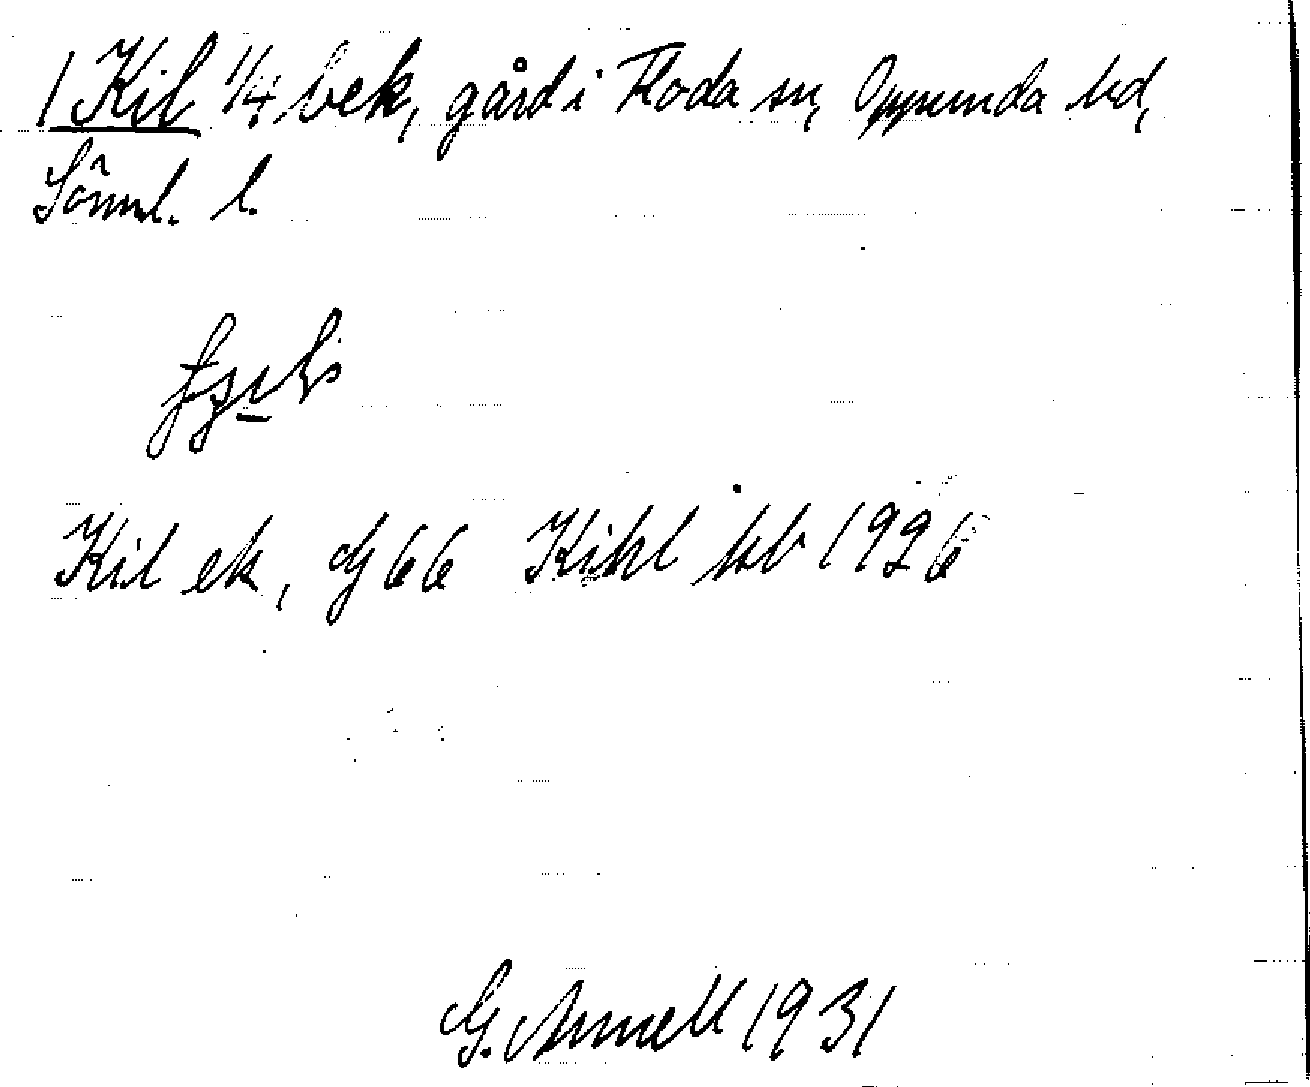 1 Kil 1/4 bek, gård i Floda sn, Oppunda hd,
Sörml. l.
Kil ek, dj 66 Kihl kb 1926
G. Armell 1931